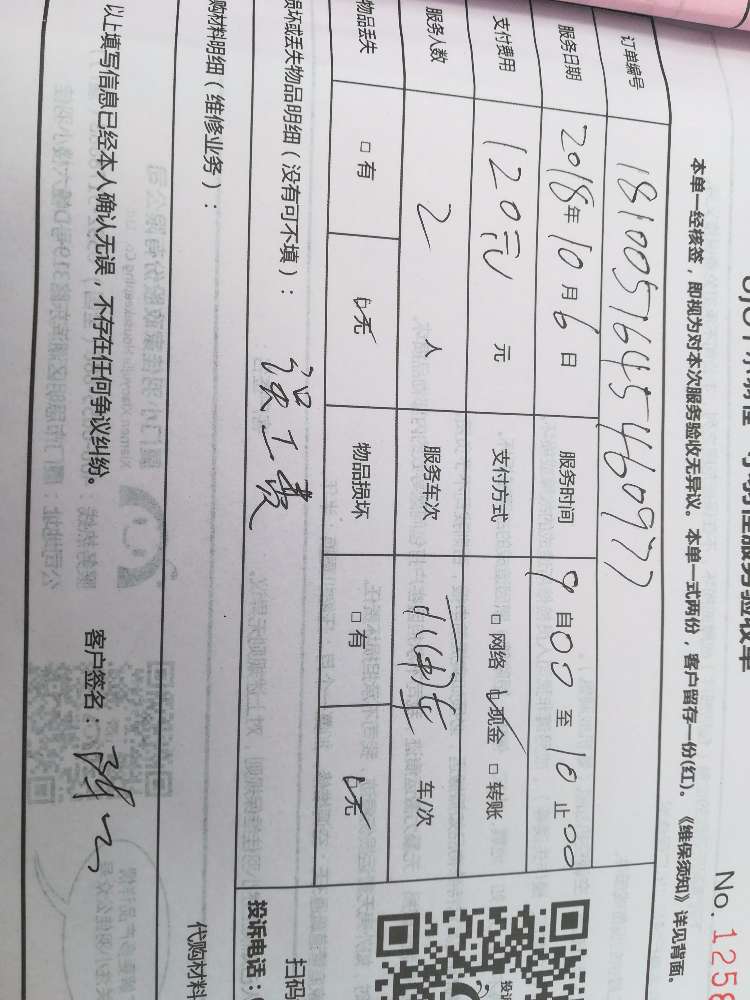 No. 1258
本单一经核签，即视为对本次服务验收无异议。本单一式两份，客户留存一份(红)。《维保须知》详见背面。
订单编号 181005164546097
服务日期 2018年10月6日 服务时间 9自00至10止00
支付费用 120元 元 支付方式 □ 网络 ☑ 现金 □ 转账
服务人数 2 人 服务车次 车/次
物品丢失 □ 有 ☑ 无 物品损坏 □ 有 ☑ 无
损坏或丢失物品明细（没有可不填）：
误工费
投诉电话：
扫码
购材料明细（维修业务）：
代购材料
以上填写信息已经本人确认无误，不存在任何争议纠纷。 客户签名：